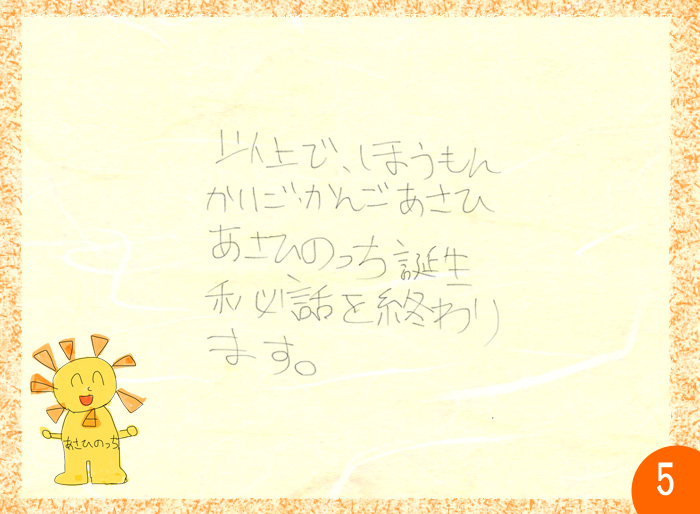 以上で、ほうもん
かいご・かんごあさひ
あさひのっち誕生
秘話を終わり
ます。
あさひのっち
5